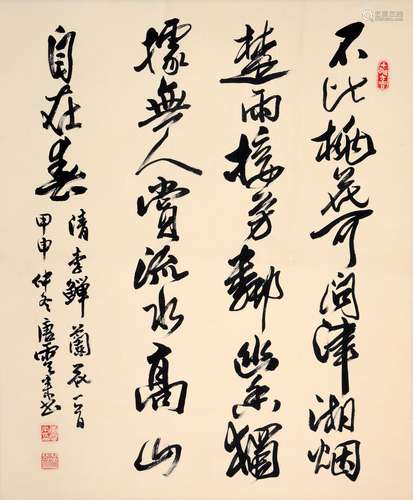 不比桃花可問津湘烟
楚雨接芳鄰幽香獨
據無人賞流水高山
自在春
清李鱓蘭花一首
甲申仲冬唐雲来书